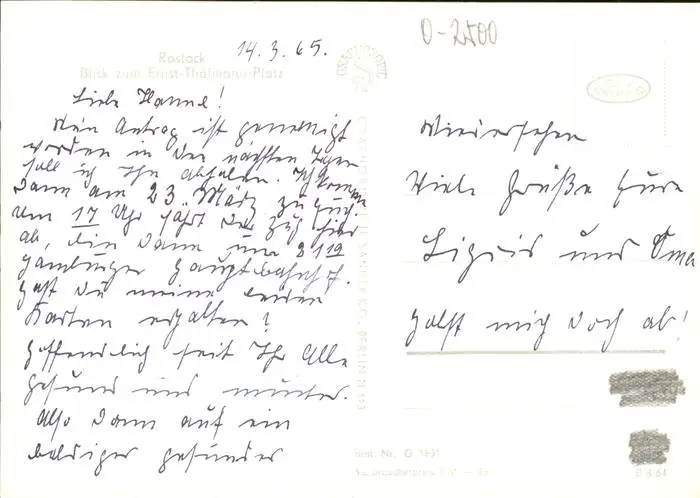 14.3.65.
0-2500
Rostock
Blick zum Ernst-Thälmann-Platz
Liebe Hanne!
Mein Antrag ist genemigt
worden in den nächsten Tagen
soll ich ihn abholen. Ich komme
dann am 23. März zu Euch.
Um 17 Uhr fährt der Zug hier
ab, bin dann um 21 19
Hamburger Hauptbahnhof.
Hast Du meine beiden
Karten erhalten?
Hoffendlich seit Ihr Alle
gesund und munter.
Also dann auf ein
baldiges gesundes
Wiedersehen
Viele Grüße Eure
und Oma
Holst mich doch ab!
Best. Nr. G